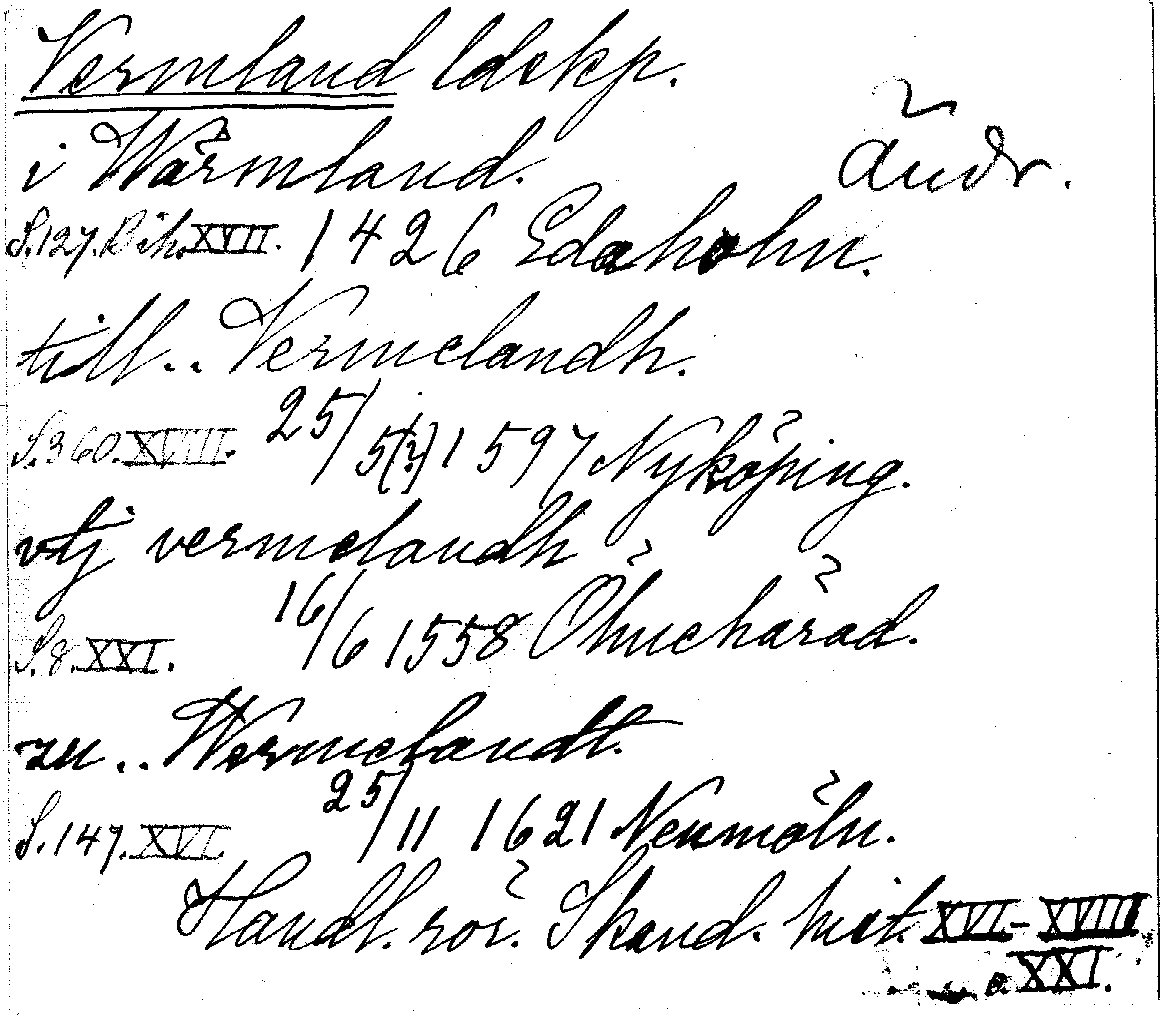 Vermland ldskp.
i Wärmland. Ändr.
S.127. Dih. XVII. 1426 Edaholm.
till.. Vermelandh.
S.360. XVIII. 25/5(?) 1597 Nyköping.
vtj vermelandh
S.8. XXI. 16/6 1558 Ölmehärad.
zu.. Wermelandt.
S.147. XVI. 25/11 1621 Neumöln.
Handl. rör. Skand. hist. XVI-XVIII
o. XXI.